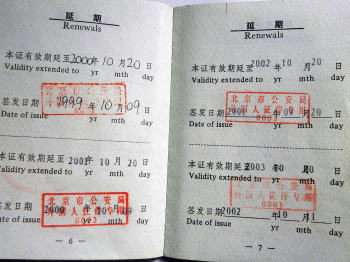 延 期
Renewals
本证有效期延至2000年10月20日
Validity extended to yr mth day
签发日期1999年10月09日
Date of issue yr mth day
本证有效期延至2001年10月20日
Validity extended to yr mth day
北京市公安局
外国人证件专用
0003
签发日期2000
Date of issue
- 6 -
延 期
Renewals
本证有效期延至2002年10月20日
Validity extended to yr mth day
北京市公安局
外国人证件专用
0003
签发日期2001
Date of issue yr mth day
本证有效期延至2003年10月20日
Validity extended to yr mth day
公安局
外国人证件专用
0001
签发日期2002年10月11日
Date of issue yr mth day
- 7 -